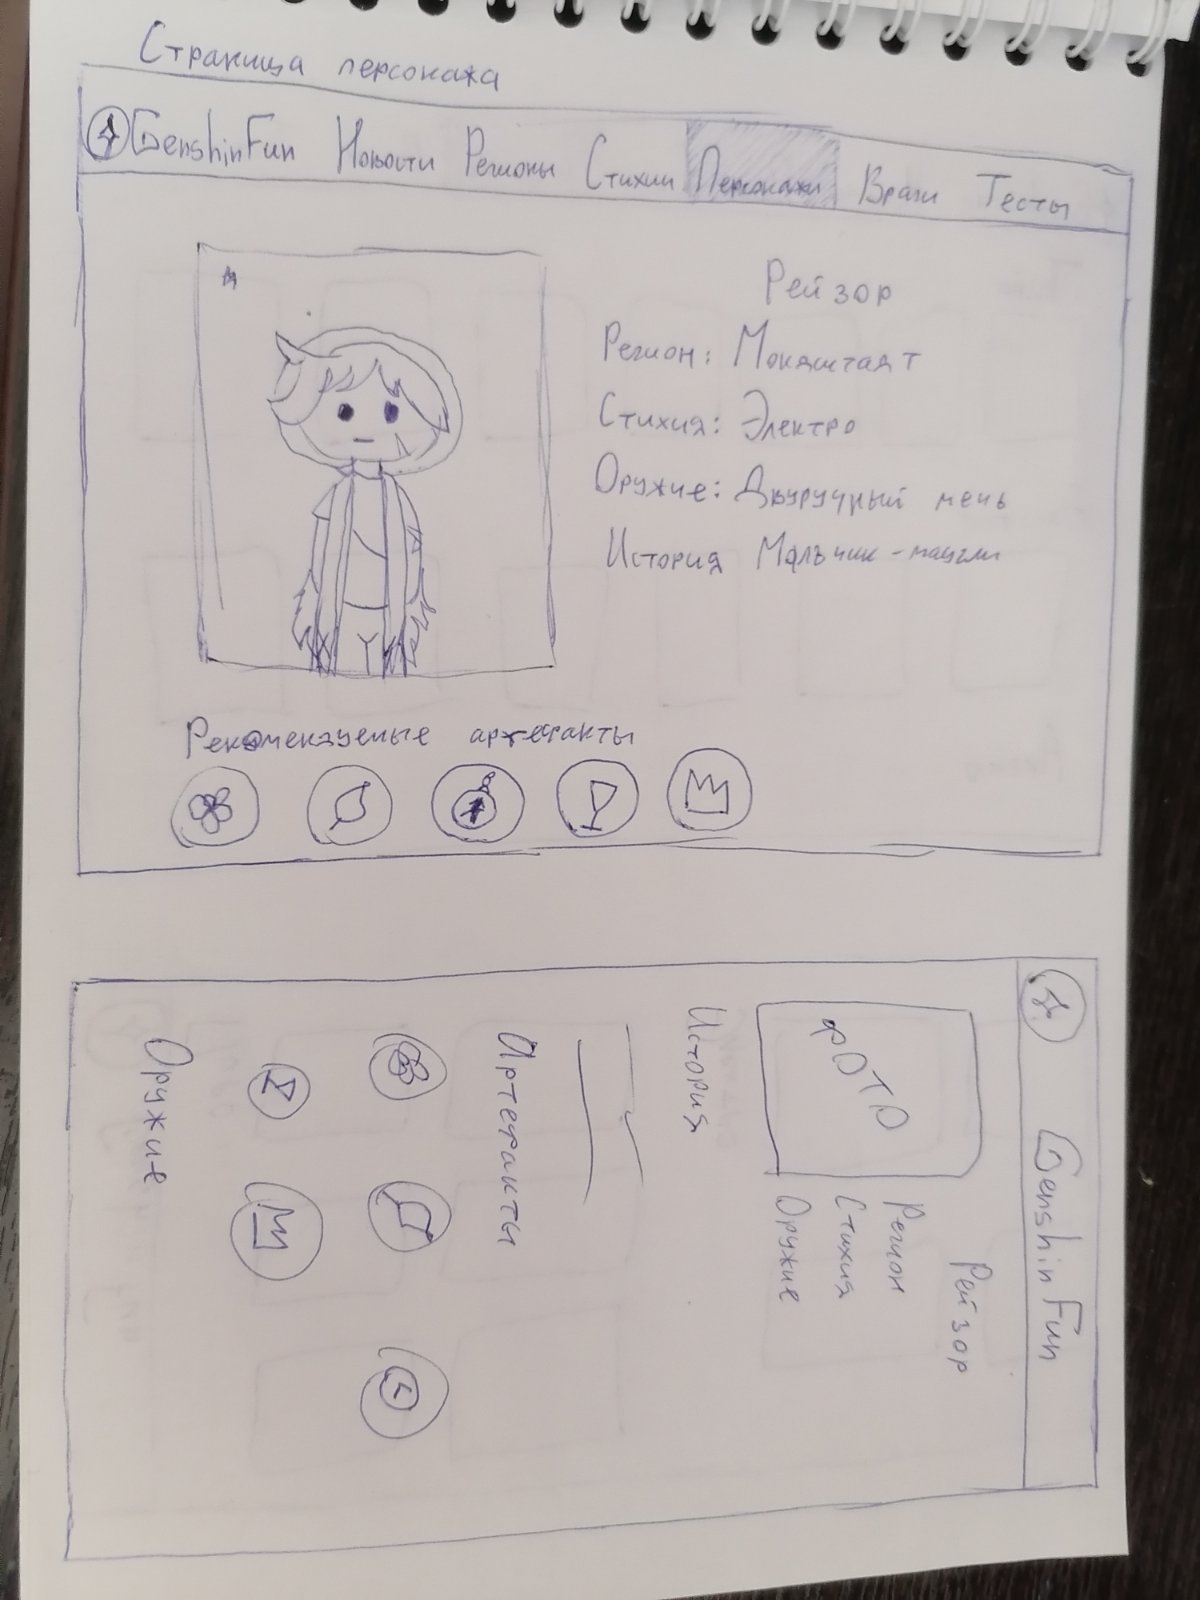 Страница персонажа
GenshinFun Новости Регионы Стихии Персонажи Враги Тесты
Рейзор
Регион: Мондштадт
Стихия: Электро
Оружие: Двуручный мечь
История Мальчик-маугли
Рекомендуемые артефакты
GenshinFun
Рейзор
Регион
Стихия
Оружие
фОТО
История
Артефакты
Оружие